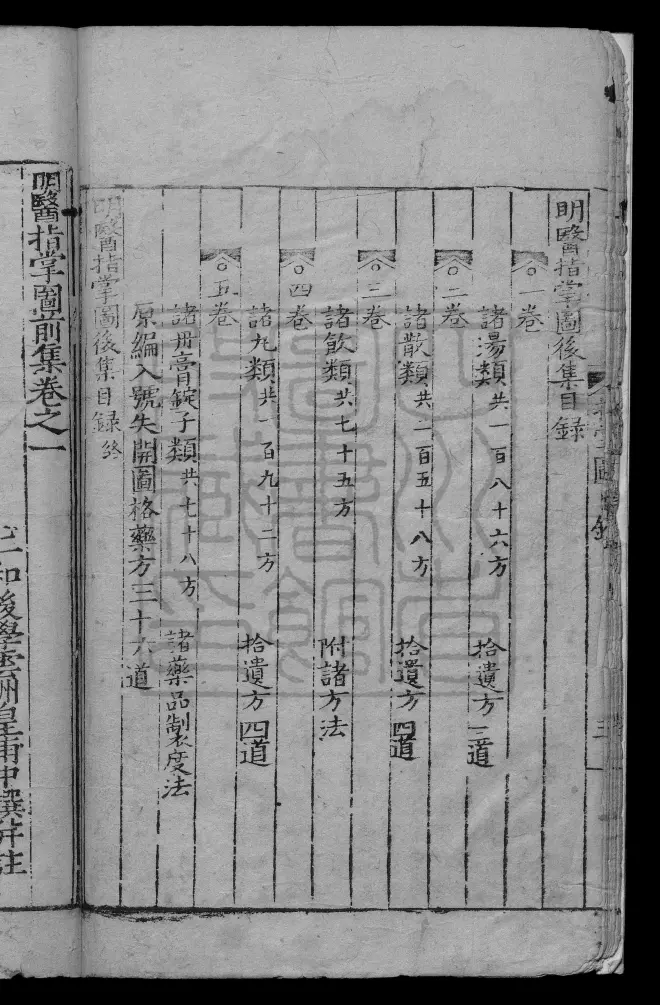 明醫指掌圖後集目録
一卷
諸湯類共一百八十六方 拾遺方三道
二卷
諸散類共二百五十八方 拾遺方四道
三卷
諸飲類共七十五方 附諸方法
四卷
諸丸類共一百九十二方 拾遺方四道
五卷
諸丹膏錠子類共七十八方 諸藥品製度法
原編入號失開圖格藥方三十六道
明醫指掌圖後集目録終
明醫指掌圖前集卷之一
仁和後學雲洲皇甫中撰并註